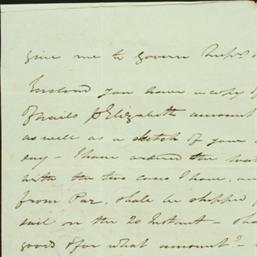 give me to govern
Enclosed you have a copy of
of nails p Elizabeth amount
as well as a sketch of your
say - I have ordered the
with the two cases I have,
from Par, shall be shipped
sail on the 20 Instant -
good & for what amount? -